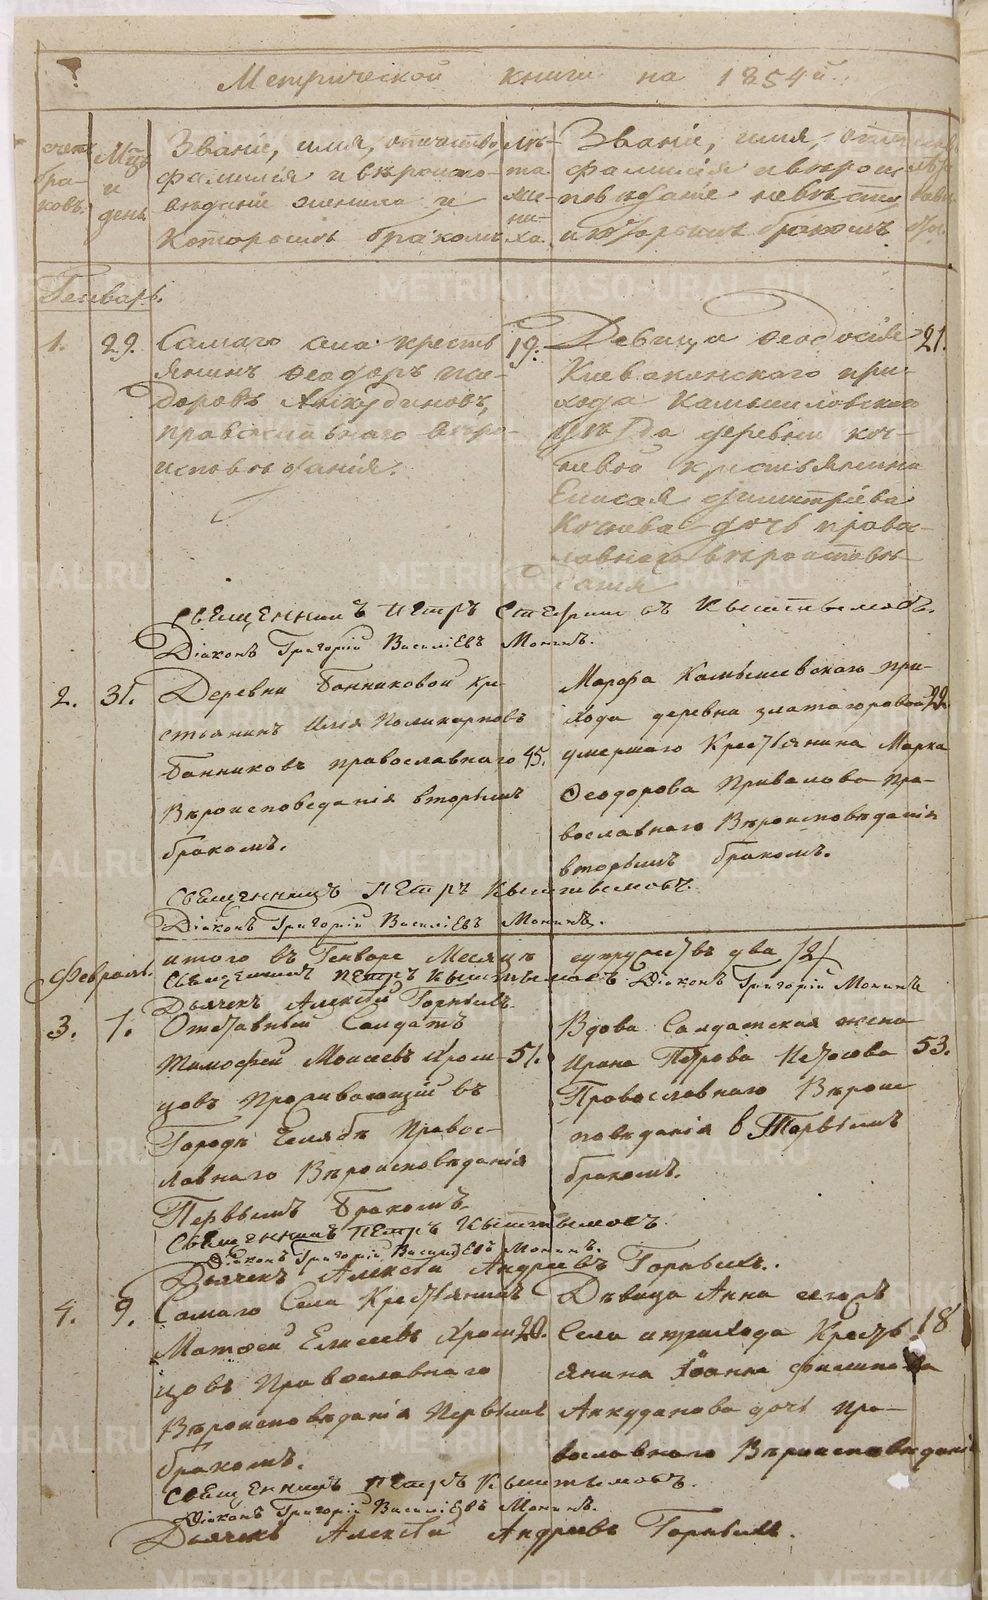 Метрической книги на 1854й.
счетъ браковъ.
Мцъ и день
Званіе, имя, отчество,
фамилія и вѣроиспо-
вѣданіе жениха и
которымъ бракомъ
лѣ-
та
же-
ни-
ха.
Званіе, имя, отче
фамилія и вѣроис
повѣданіе невѣсты
и которымъ бракомъ
Генварь.
1.
29.
Самаго сла кресть
янинъ Ѳеодоръ
доровъ Анкудиновъ,
православнаго вѣро-
исповѣданія.
19.
Девица Ѳеодосія
Клевакинскаго при-
хода Камышловскаго
уѣзда деревни Коч-
невой крестьянина
Елисея Димитріева
Кочнева дочь право-
славнаго вѣроисповѣ
данія
21.
Священникъ Петръ Стефановъ Кыштымовъ.
Діаконъ Григорій Василіевъ Монинъ.
2.
31.
Деревни Банниковой кре-
стьянинъ Илія Поликарповъ
Банниковъ православнаго
Вѣроисповеданія вторымъ
бракомъ.
45.
Марѳа Камышевскаго при-
хода деревни златагоровой
умершаго Крестьянина Марка
Ѳеодорова Привалова пра-
вославнаго Вѣроисповѣданія
вторымъ бракомъ.
22.
Священникъ Петръ Кыштымовъ.
Діаконъ Григорій Василіевъ Монинъ.
итого въ Генваре Месяцѣ супружествъ два /2/
Священникъ Петръ Кыштымовъ Діаконъ Григорій Монинъ
Дьячекъ Алексѣй Горныхъ.
Февраль.
3.
7.
Отставный Солдатъ
Тимофей Моисеевъ Хром-
цовъ Проживающій въ
Городѣ Челябѣ Правос-
лавнаго Вѣроисповѣданія
Первымъ бракомъ.
51.
Вдова Солдатская жена
Ирина Петрова
Православнаго Вѣроис
поведанія вторымъ
бракомъ.
53.
Священникъ Петръ Кыштымовъ.
Діаконъ Григорій Василіевъ Монинъ.
Дьячекъ Алексѣй Андреевъ Горныхъ.
4.
9.
Самаго Села Крестьянинъ
Матѳей Елисеевъ Хром
цовъ Православнаго
Вѣроисповѣданія Первымъ
бракомъ.
20.
Дѣвица Анна сегожъ
Села и прихода Кресть
янина Іоанна Филиппова
Анкудинова дочь пра-
вославнаго Вѣроисповѣданія
18
Священникъ Петръ Кыштымовъ.
Діаконъ Григорій Василіевъ Монинъ.
Дьячекъ Алексѣй Андреевъ Горныхъ.